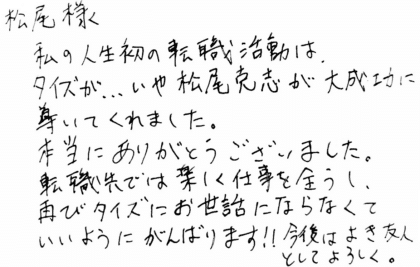 松尾様へ
私の人生初の転職活動は、
タイズが…いや松尾克志が大成功に
導いてくれました。
本当にありがとうございました。
転職先では楽しく仕事を全うし、
再びタイズにお世話にならなくて
いいようにがんばります!!今後はよき友人
としてよろしく。